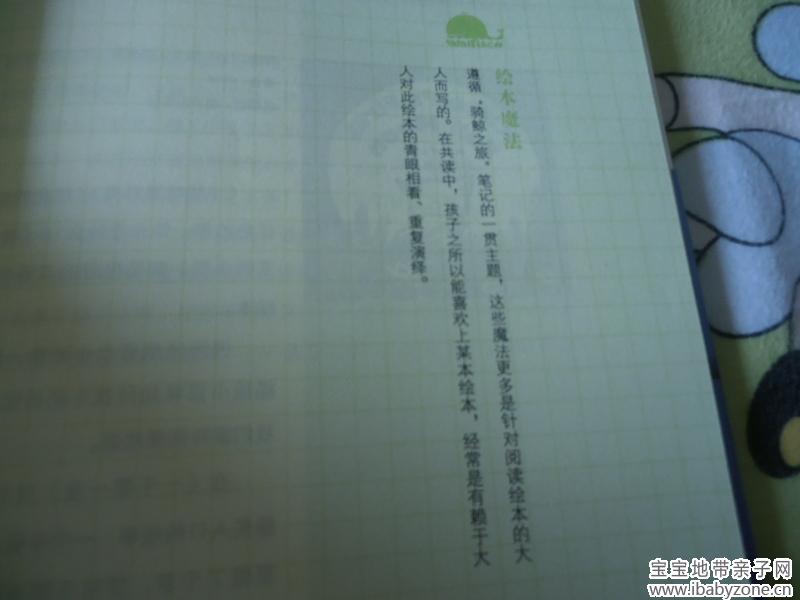 绘本魔法
遵循“骑鲸之旅”笔记的一贯主题，这些魔法更多是针对阅读绘本的大
人而写的。在共读中，孩子之所以能喜欢上某本绘本，经常是有赖于大
人对此绘本的青眼相看、重复演绎。
宝宝地带亲子网
www.ibabyzone.cn